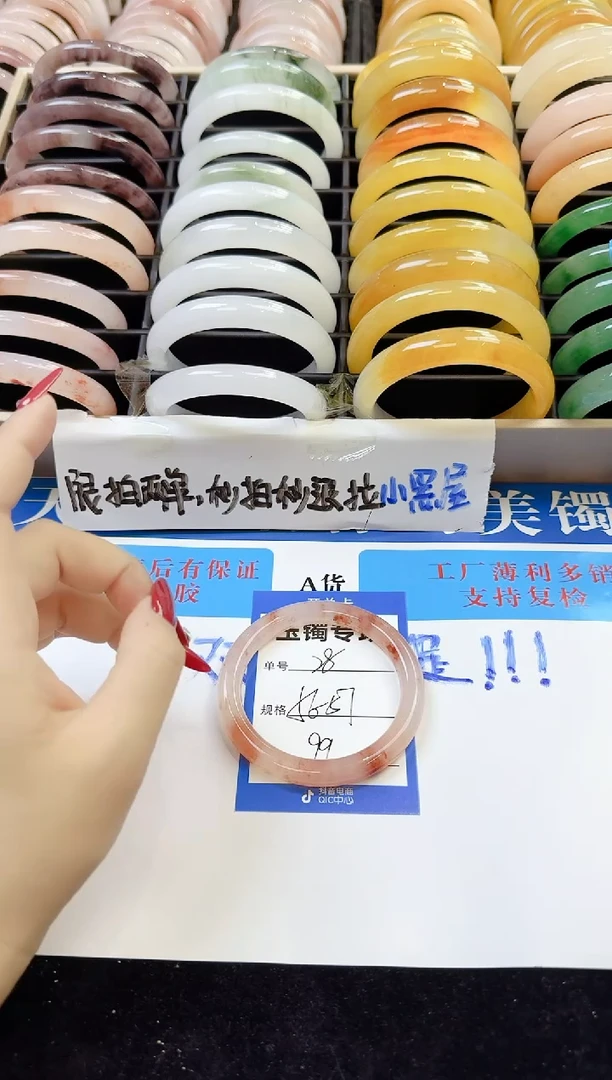 限拍两单，秒拍秒退拉小黑屋
天
美镯
后有保证
胶
A货
工厂薄利多销
支持复检
开单卡
玉镯专
足!!!
单号 28
规格 56-57
99
抖音电商
QIC中心